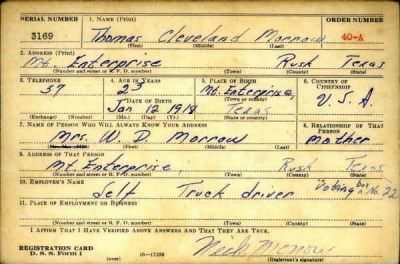 SERIAL NUMBER 1. NAME (Print) ORDER NUMBER
3169 Thomas Cleveland Morrow 40-A
(First) (Middle) (Last)
2. ADDRESS (Print)
Mt. Enterprise Rusk Texas
(Number and street or R. F. D. number) (Town) (County) (State)
3. TELEPHONE 4. AGE IN YEARS 5. PLACE OF BIRTH 6. COUNTRY OF CITIZENSHIP
37 23 Mt. Enterprise,
DATE OF BIRTH (Town or county)
Jan 12 1918 Texas U.S.A.
(Exchange) (Number) (Mo.) (Day) (Yr.) (State or country)
7. NAME OF PERSON WHO WILL ALWAYS KNOW YOUR ADDRESS 8. RELATIONSHIP OF THAT PERSON
Mrs. W. D. Morrow Mother
(Mr., Mrs., Miss) (First) (Middle) (Last)
9. ADDRESS OF THAT PERSON
Mt. Enterprise, Rusk Texas
(Number and street or R. F. D. number) (Town) (County) (State)
10. EMPLOYER'S NAME
Self Truck driver Voting No. 22
11. PLACE OF EMPLOYMENT OR BUSINESS
(Number and street or R. F. D. number) (Town) (County) (State)
I AFFIRM THAT I HAVE VERIFIED ABOVE ANSWERS AND THAT THEY ARE TRUE.
REGISTRATION CARD
D. S. S. Form 1 Morrow
(Registrant's signature)